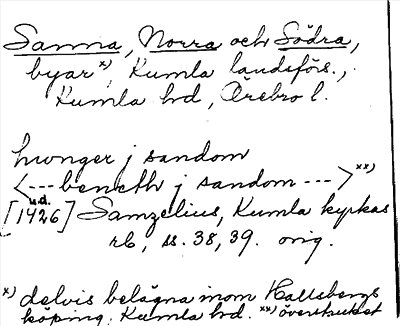 Sanna, Norra och Södra,
byar x), Kumla landsförs.,
Kumla hd, Örebro l.
hwnger j sandom
<--- beneth j sandom --->xx)
[1426] u.d. Samzelius, Kumla kyrkas
rb, ss. 38, 39. orig.
x) delvis belägna inom Hallsbergs
köping, Kumla hd. xx) överstruket